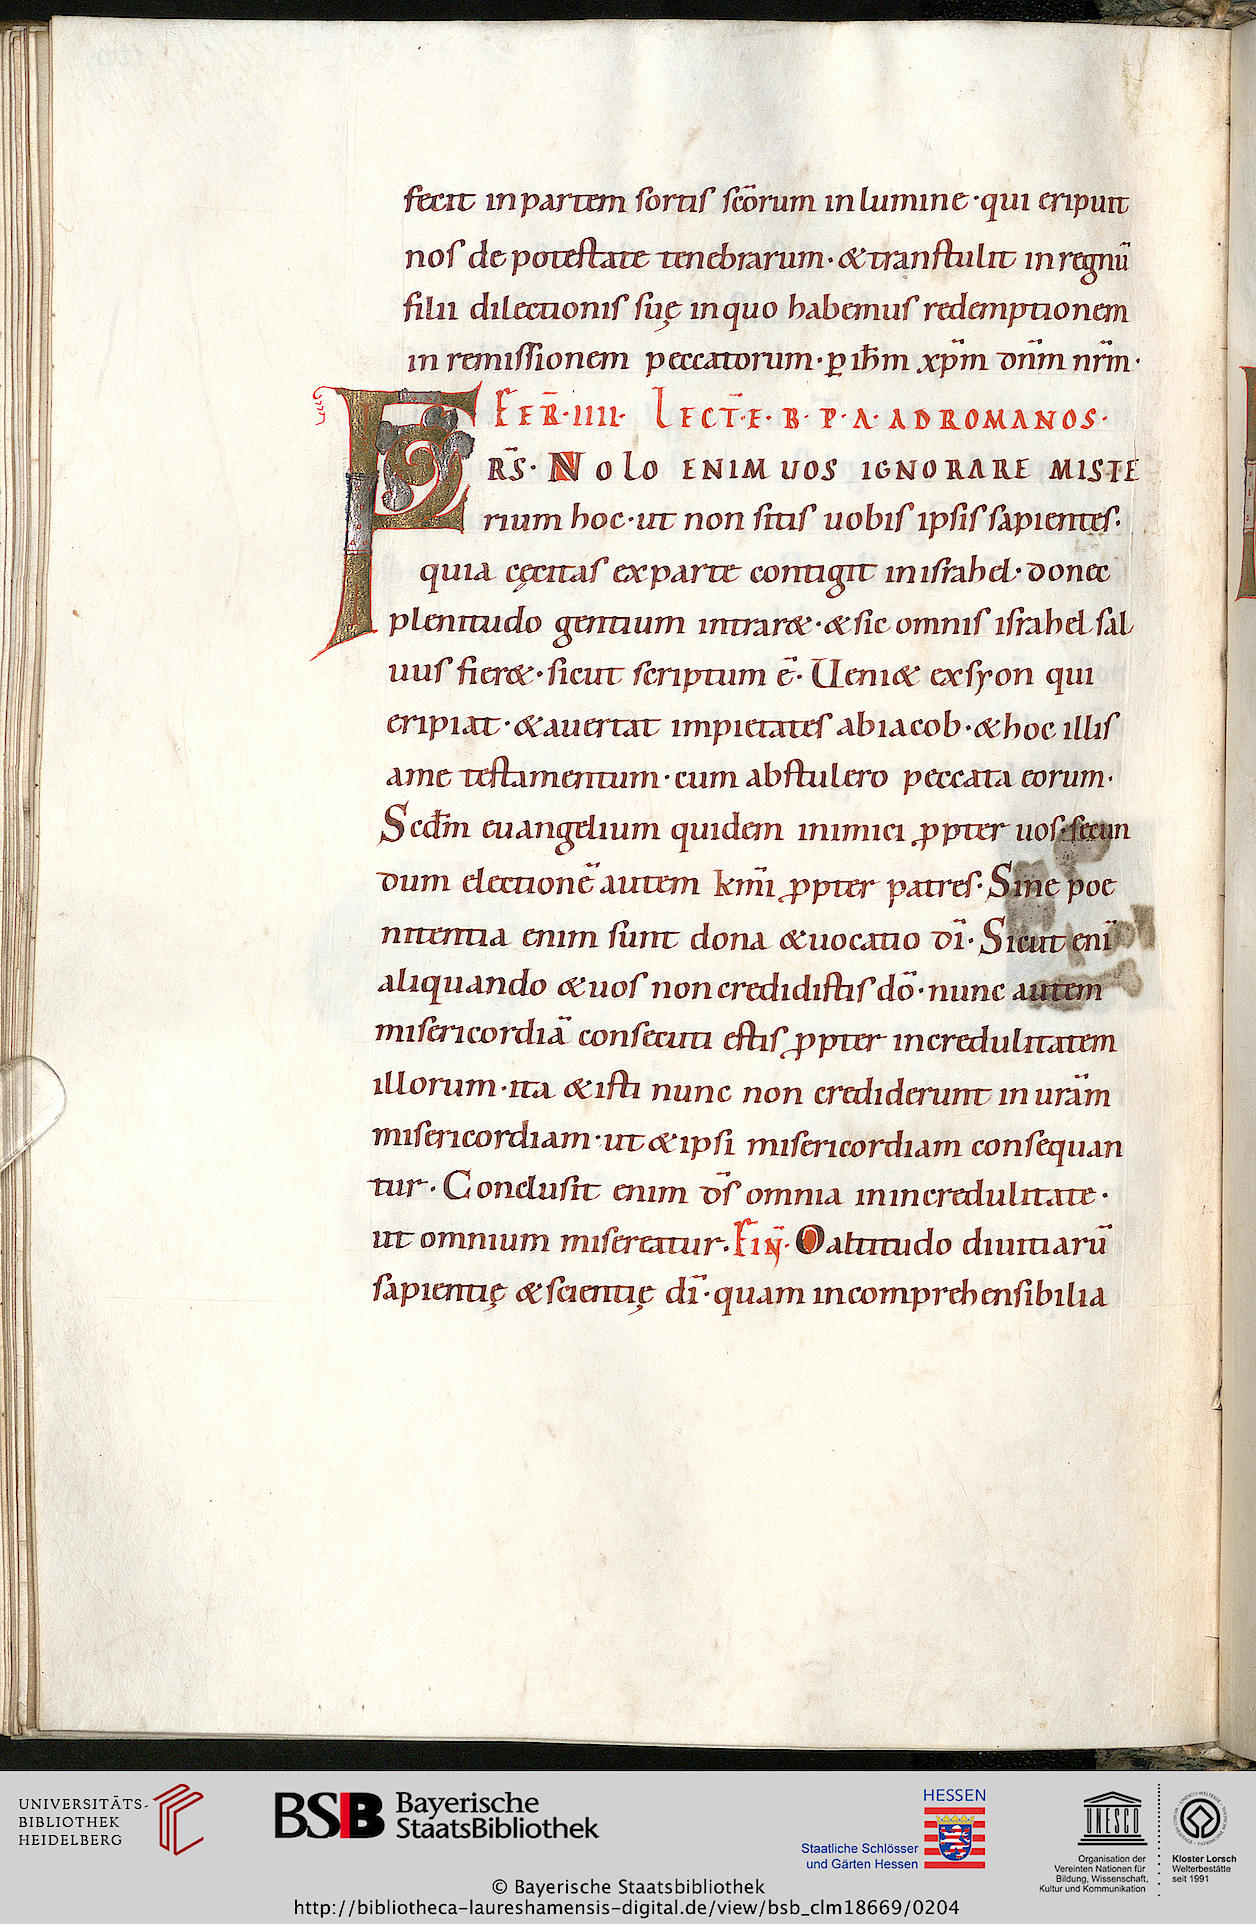 fecit inpartem sortis scōrum inlumine · qui eripuit
nos de potestate tenebrarum · & transtulit inregnū
filii dilectionis suę inquo habemus redemptionem
in remissionem peccatorum · ꝑ ih̄m xp̄m dn̄m nr̄m ·
FER̄ · IIII · LECT̄ · E · B · P · A · AD ROMANOS ·
FRS̄ · Nolo ENIM UOS IGNORARE MISTE
rium hoc · ut non sitis uobis ipsis sapientes ·
quia cęcitas exparte contigit inisrahel · donec
plenitudo gentium intrar& · & sic omnis israhel sal
uus fier& · sicut scriptum ē · Ueni& exsyon qui
eripiat · & auertat impietates abiacob · & hoc illis
ame testamentum · cum abstulero peccata eorum ·
Scdm̄ euangelium quidem inimici ꝓpter uos · secun
dum electionē autem km̄i ꝓpter patres · Sine poe
nitentia enim sunt dona & uocatio dī · Sicut enī
aliquando & uos noncredidistis dō · nunc autem
misericordiā consecuti estis ꝓpter incredulitatem
illorum · ita & isti nunc non crediderunt in urām
misericordiam · ut & ipsi misericordiam consequan
tur · Conclusit enim ds̄ omnia inincredulitate ·
ut omnium misereatur. FIN̄ · O altitudo diuitiarū
sapientię & scientię dī · quam incomprehensibilia
UNIVERSITÄTS-
BIBLIOTHEK
HEIDELBERG
BSB Bayerische
StaatsBibliothek
HESSEN
Staatliche Schlösser
und Gärten Hessen
UNESCO
Organisation der
Vereinten Nationen für
Bildung, Wissenschaft,
Kultur und Kommunikation
Kloster Lorsch
Welterbestätte
seit 1991
© Bayerische Staatsbibliothek
http://bibliotheca-laureshamensis-digital.de/view/bsb_clm18669/0204